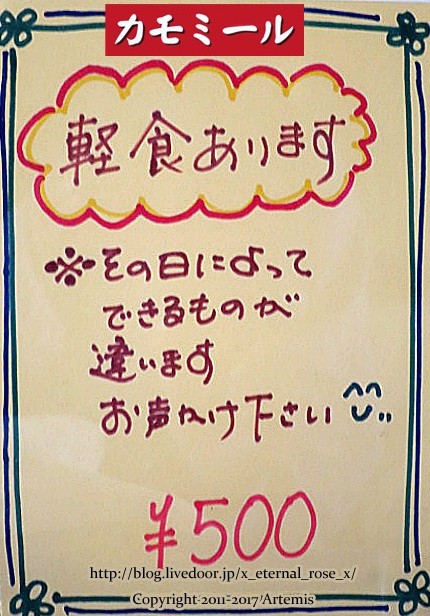 カモミール
軽食あります
※その日によって
できるものが
違います
お声かけ下さい
¥500
http://blog.livedoor.jp/x_eternal_rose_x/
Copyright 2011-2017/Artemis